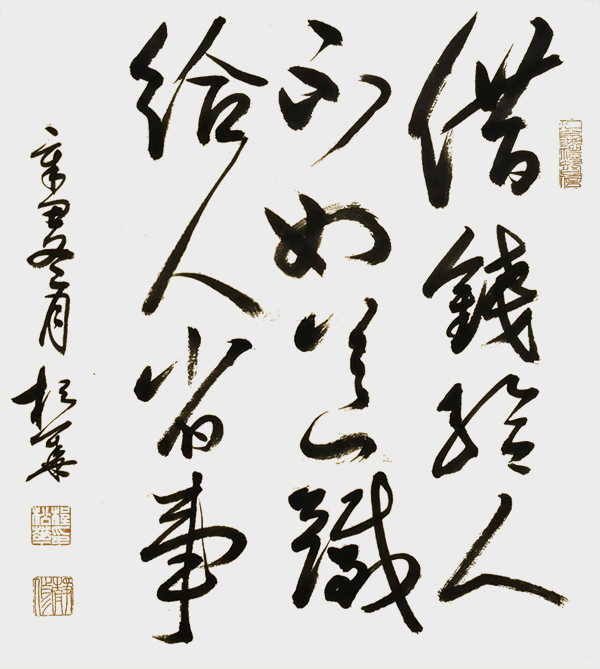 借錢給人
不如送錢
給人省事
辛丑冬月松華